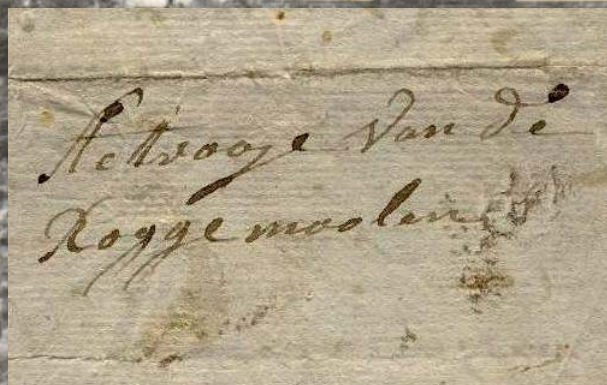 Actvooije Van de
Roggemoolen